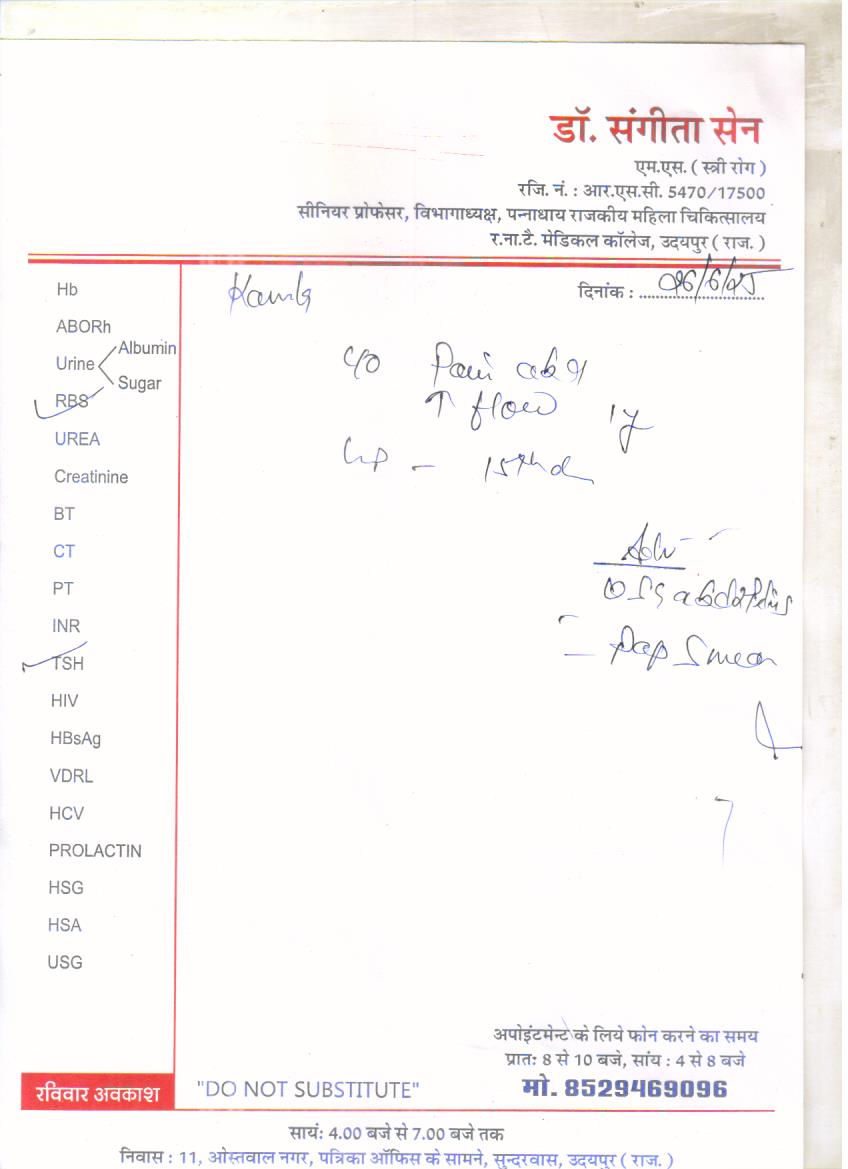 डॉ. संगीता सेन
एम.एस. ( स्त्री रोग )
रजि. नं. : आर.एस.सी. 5470/17500
सीनियर प्रोफेसर, विभागाध्यक्ष, पन्नाधाय राजकीय महिला चिकित्सालय
र.ना.टै. मेडिकल कॉलेज, उदयपुर ( राज. )
दिनांक : 06/6/25
Hb
ABORh
Urine Albumin
Sugar
RBS
UREA
Creatinine
BT
CT
PT
INR
TSH
HIV
HBsAg
VDRL
HCV
PROLACTIN
HSG
HSA
USG
c/o Pain abd
↑ flow 1y
LMP – 15th d
Adv
Pap Smear
अपोइंटमेन्ट के लिये फोन करने का समय
प्रातः 8 से 10 बजे, सांय : 4 से 8 बजे
मो. 8529469096
रविवार अवकाश
"DO NOT SUBSTITUTE"
सायं: 4.00 बजे से 7.00 बजे तक
निवास : 11, ओस्तवाल नगर, पत्रिका ऑफिस के सामने, सुन्दरवास, उदयपुर ( राज. )